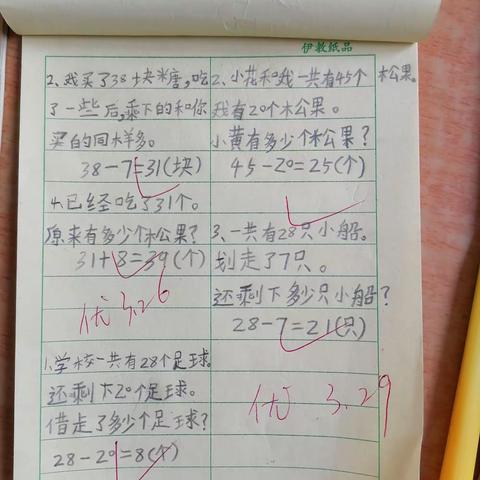 伊教纸品
2、我买了38块米唐,吃
了一些后,乘下的和你
买的同样多。
38-7=31(块)
4.已经吃了31个。
原来有多少个松果?
31+8=39(个)
优 3.26
1.学校一共有28个足球。
还剩下20个足球。
借走了多少个足球?
28-20=8(个)
2、小花和我一共有45个松果。
我有20个松公果。
小黄有多少个松果?
45-20=25(个)
3、一共有28只小船。
划走了7只。
还剩下多少只小船?
28-7=21(只)
优 3.29